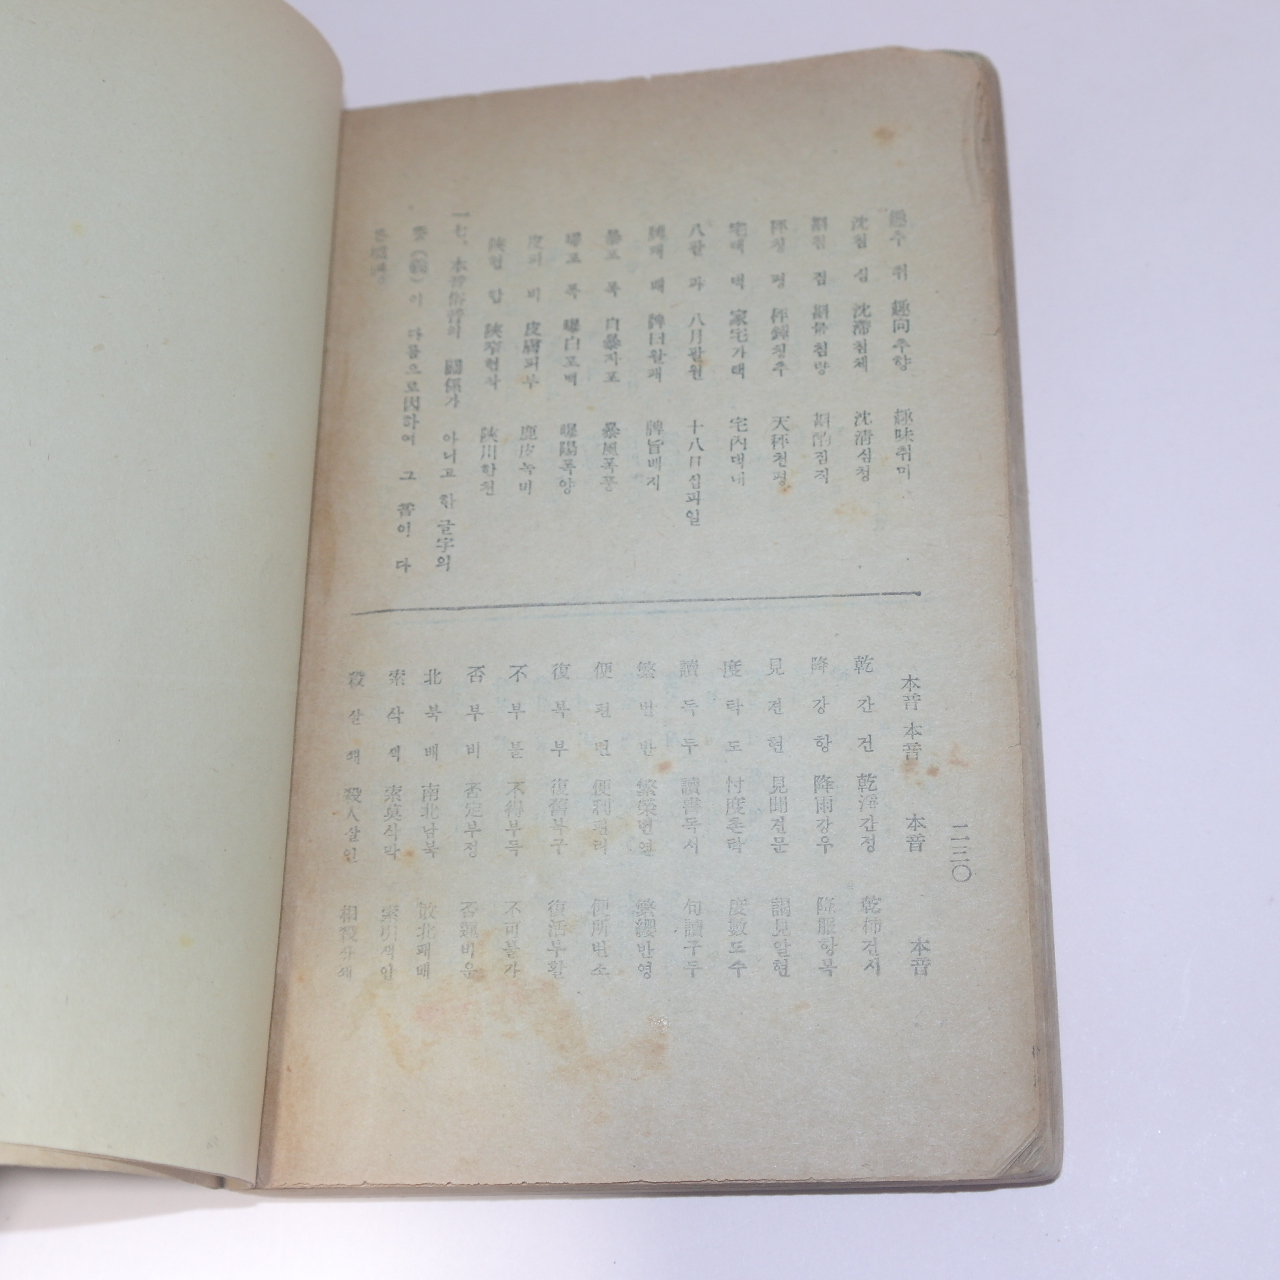 趣 추 취 趣向추향 趣味취미
沈 침 심 沈滯침체 沈淸심청
斟 침 짐 斟量침량 斟酌짐작
秤 칭 평 秤錘칭추 天秤천평
宅 택 댁 家宅가택 宅內댁내
八 팔 파 八月팔월 十八日십파일
牌 패 배 牌旨배지
暴 포 폭 自暴자포 暴風폭풍
曝 포 폭 曝白포백 曝陽폭양
皮 피 비 皮膚피부 鹿皮녹비
陜 협 합 陜窄협착 陜川합천
一七、本音俗音의 關係가 아니고 한 글字의
뜻(義)이 다름으로因하여 그 音이 다
二三〇
本音 本音 本音 本音
乾 간 건 乾淨간정 乾柿건시
降 강 항 降雨강우 降服항복
見 견 현 見聞견문 謁見알현
度 탁 도 忖度촌탁 度數도수
讀 독 두 讀書독서 句讀구두
繁 번 반 繁榮번영 繁纓반영
便 편 변 便利편리 便所변소
復 복 부 復舊복구 復活부활
不 부 불 不得부득 不可불가
否 부 비 否定부정 否運비운
北 북 배 南北남북 敗北패배
索 삭 색 索莫삭막 索引색인
殺 살 쇄 殺人살인 相殺상쇄